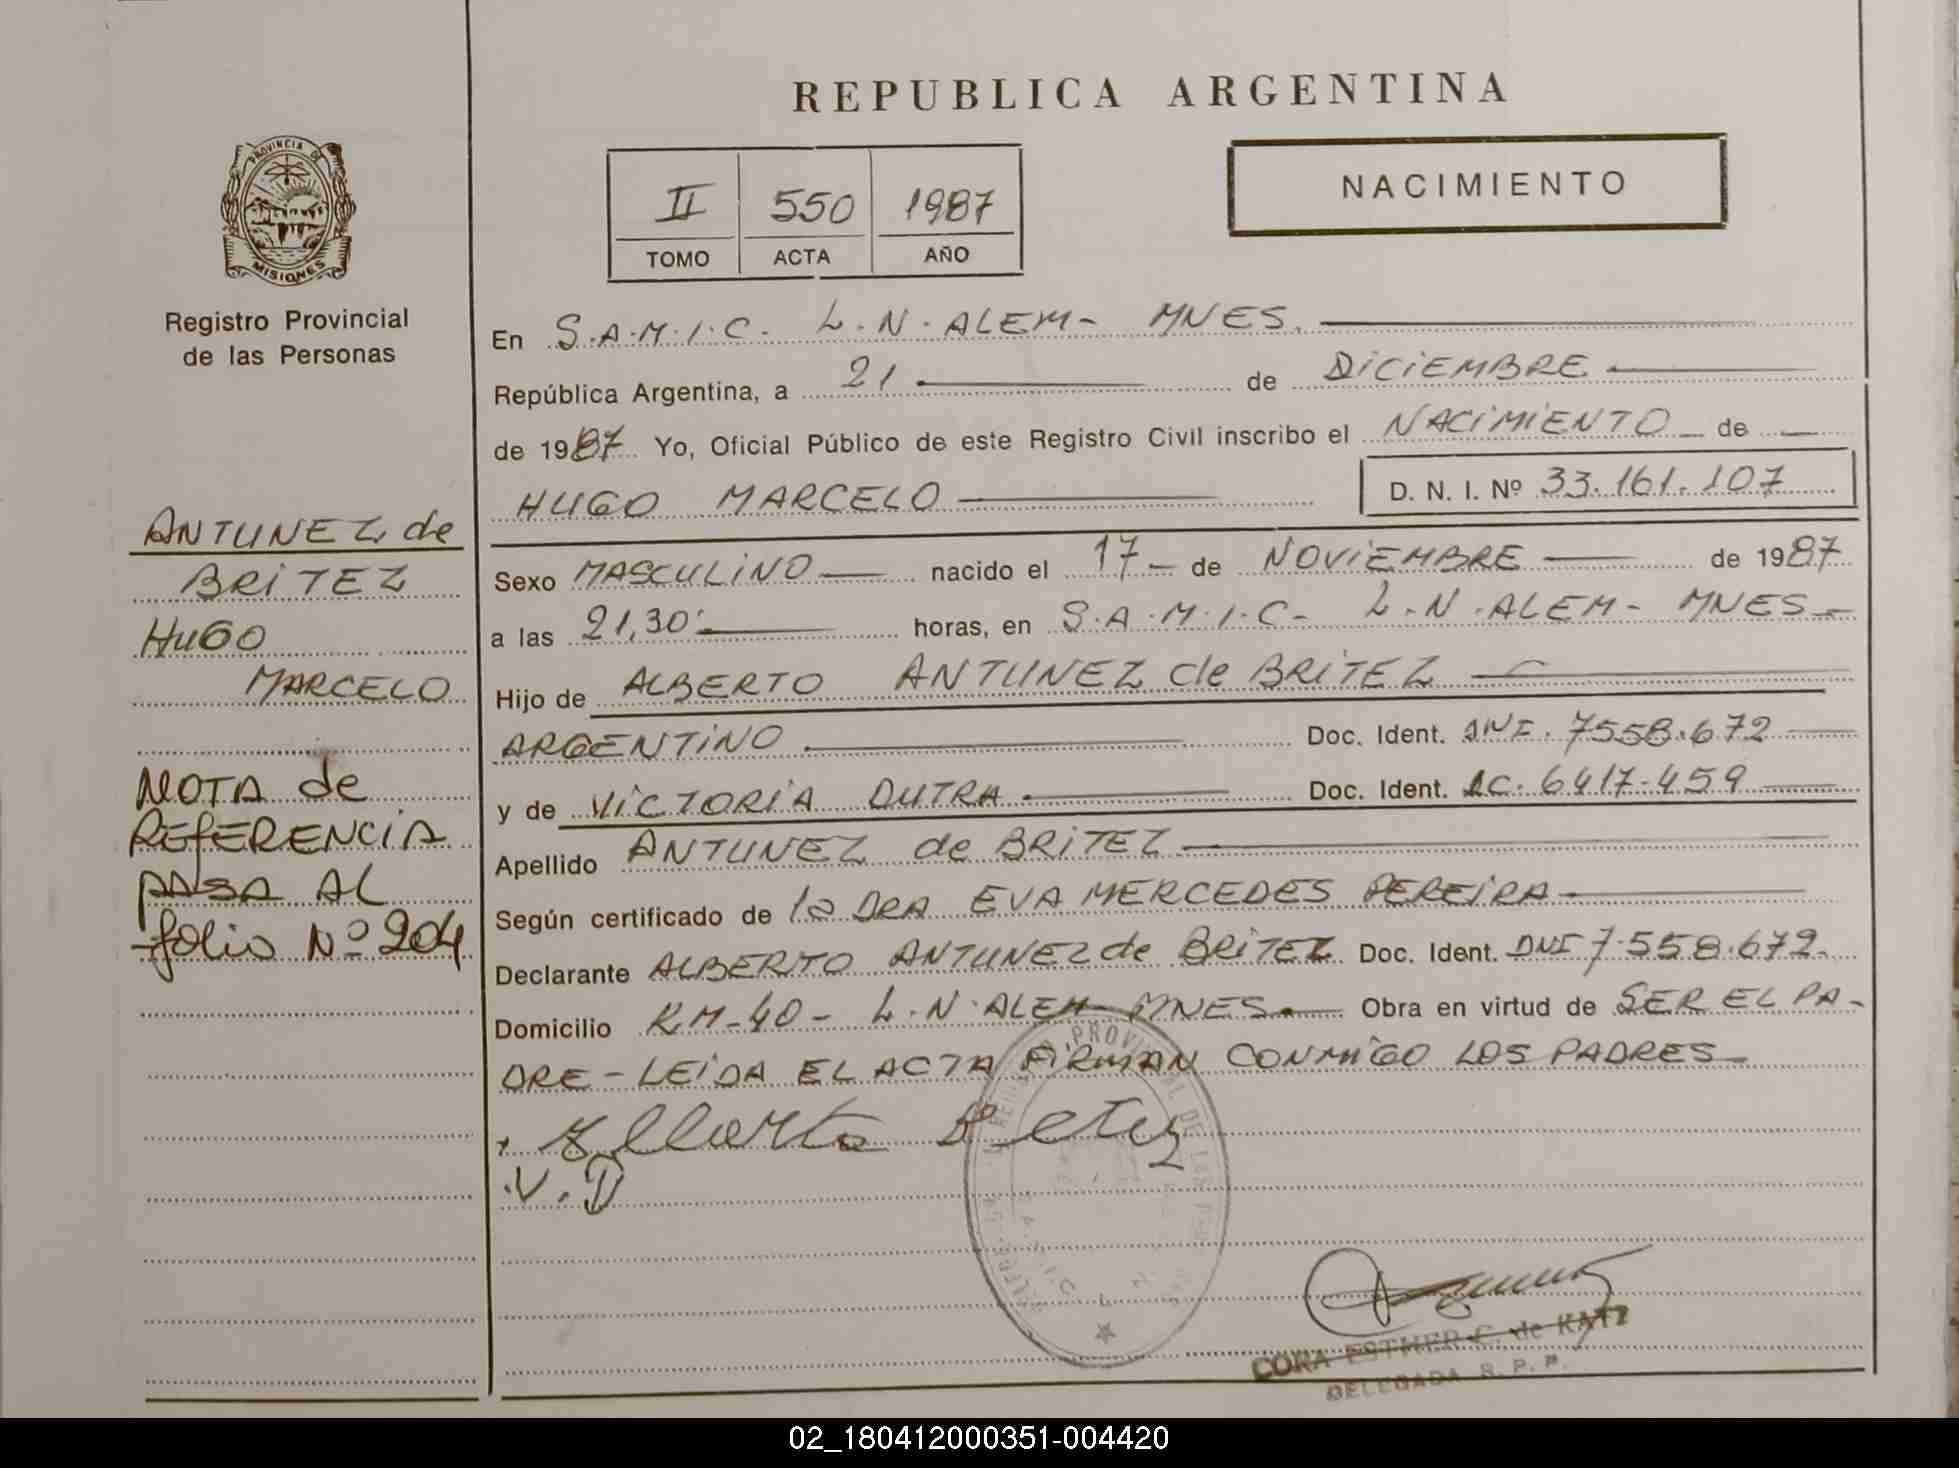 REPUBLICA ARGENTINA
PROVINCIA DE
MISIONES
Registro Provincial
de las Personas
II 550 1987
TOMO ACTA AÑO
NACIMIENTO
En S.A.M.I.C. L.N.ALEM- MNES.
República Argentina, a 21 de DICIEMBRE
de 1987 Yo, Oficial Público de este Registro Civil inscribo el NACIMIENTO de
HUGO MARCELO D. N. I. Nº 33.161.107
Sexo MASCULINO nacido el 17 de NOVIEMBRE de 1987
a las 21,30 horas, en S.A.M.I.C- L.N.ALEM- MNES
Hijo de ALBERTO ANTUNEZ de BRITEZ
ARGENTINO Doc. Ident. DNI. 7558.672
y de VICTORIA DUTRA Doc. Ident. LC. 6417.459
Apellido ANTUNEZ de BRITEZ
Según certificado de la DRA EVA MERCEDES PEREIRA
Declarante ALBERTO ANTUNEZ de BRITEZ Doc. Ident. DNI 7.558.672.
Domicilio KM-40- L.N.ALEM- MNES Obra en virtud de SER EL PA-
DRE-LEIDA EL ACTA FIRMAN CONMIGO LOS PADRES
V.D
CORA ESTHER C. de KATZ
DELEGADA R. P. P.
ANTUNEZ de
BRITEZ
HUGO
MARCELO
NOTA de
REFERENCIA
PASA AL
folio Nº 204
02_180412000351-004420